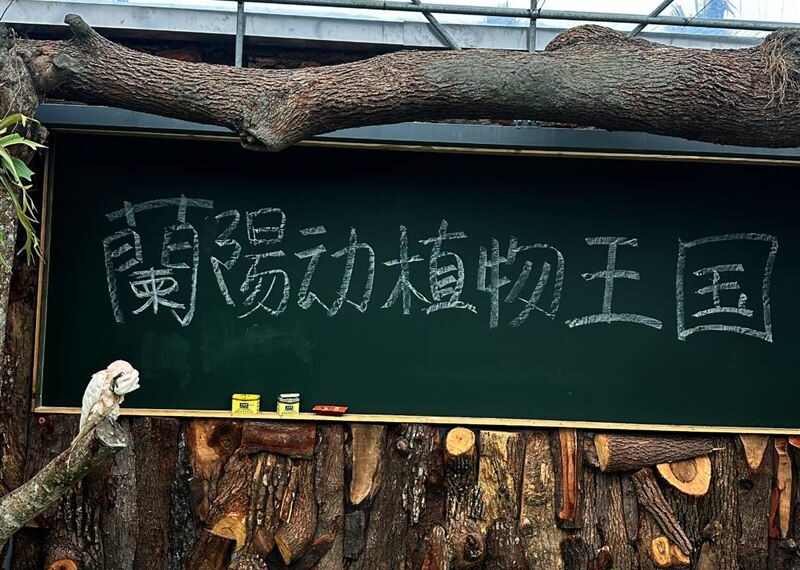 蘭陽动植物王国